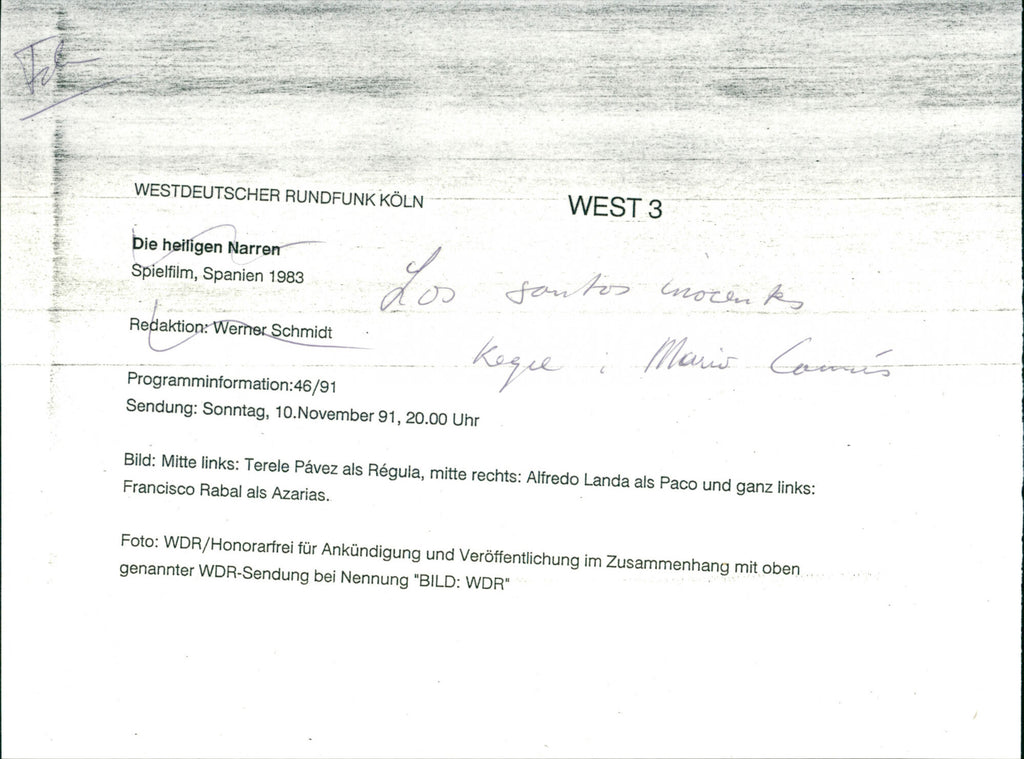 WESTDEUTSCHER RUNDFUNK KÖLN
WEST 3
Die heiligen Narren
Spielfilm, Spanien 1983
Los santos inocentes
Redaktion: Werner Schmidt
Regie : Mario Camús
Programminformation:46/91
Sendung: Sonntag, 10.November 91, 20.00 Uhr
Bild: Mitte links: Terele Pávez als Régula, mitte rechts: Alfredo Landa als Paco und ganz links:
Francisco Rabal als Azarias.
Foto: WDR/Honorarfrei für Ankündigung und Veröffentlichung im Zusammenhang mit oben
genannter WDR-Sendung bei Nennung "BILD: WDR"